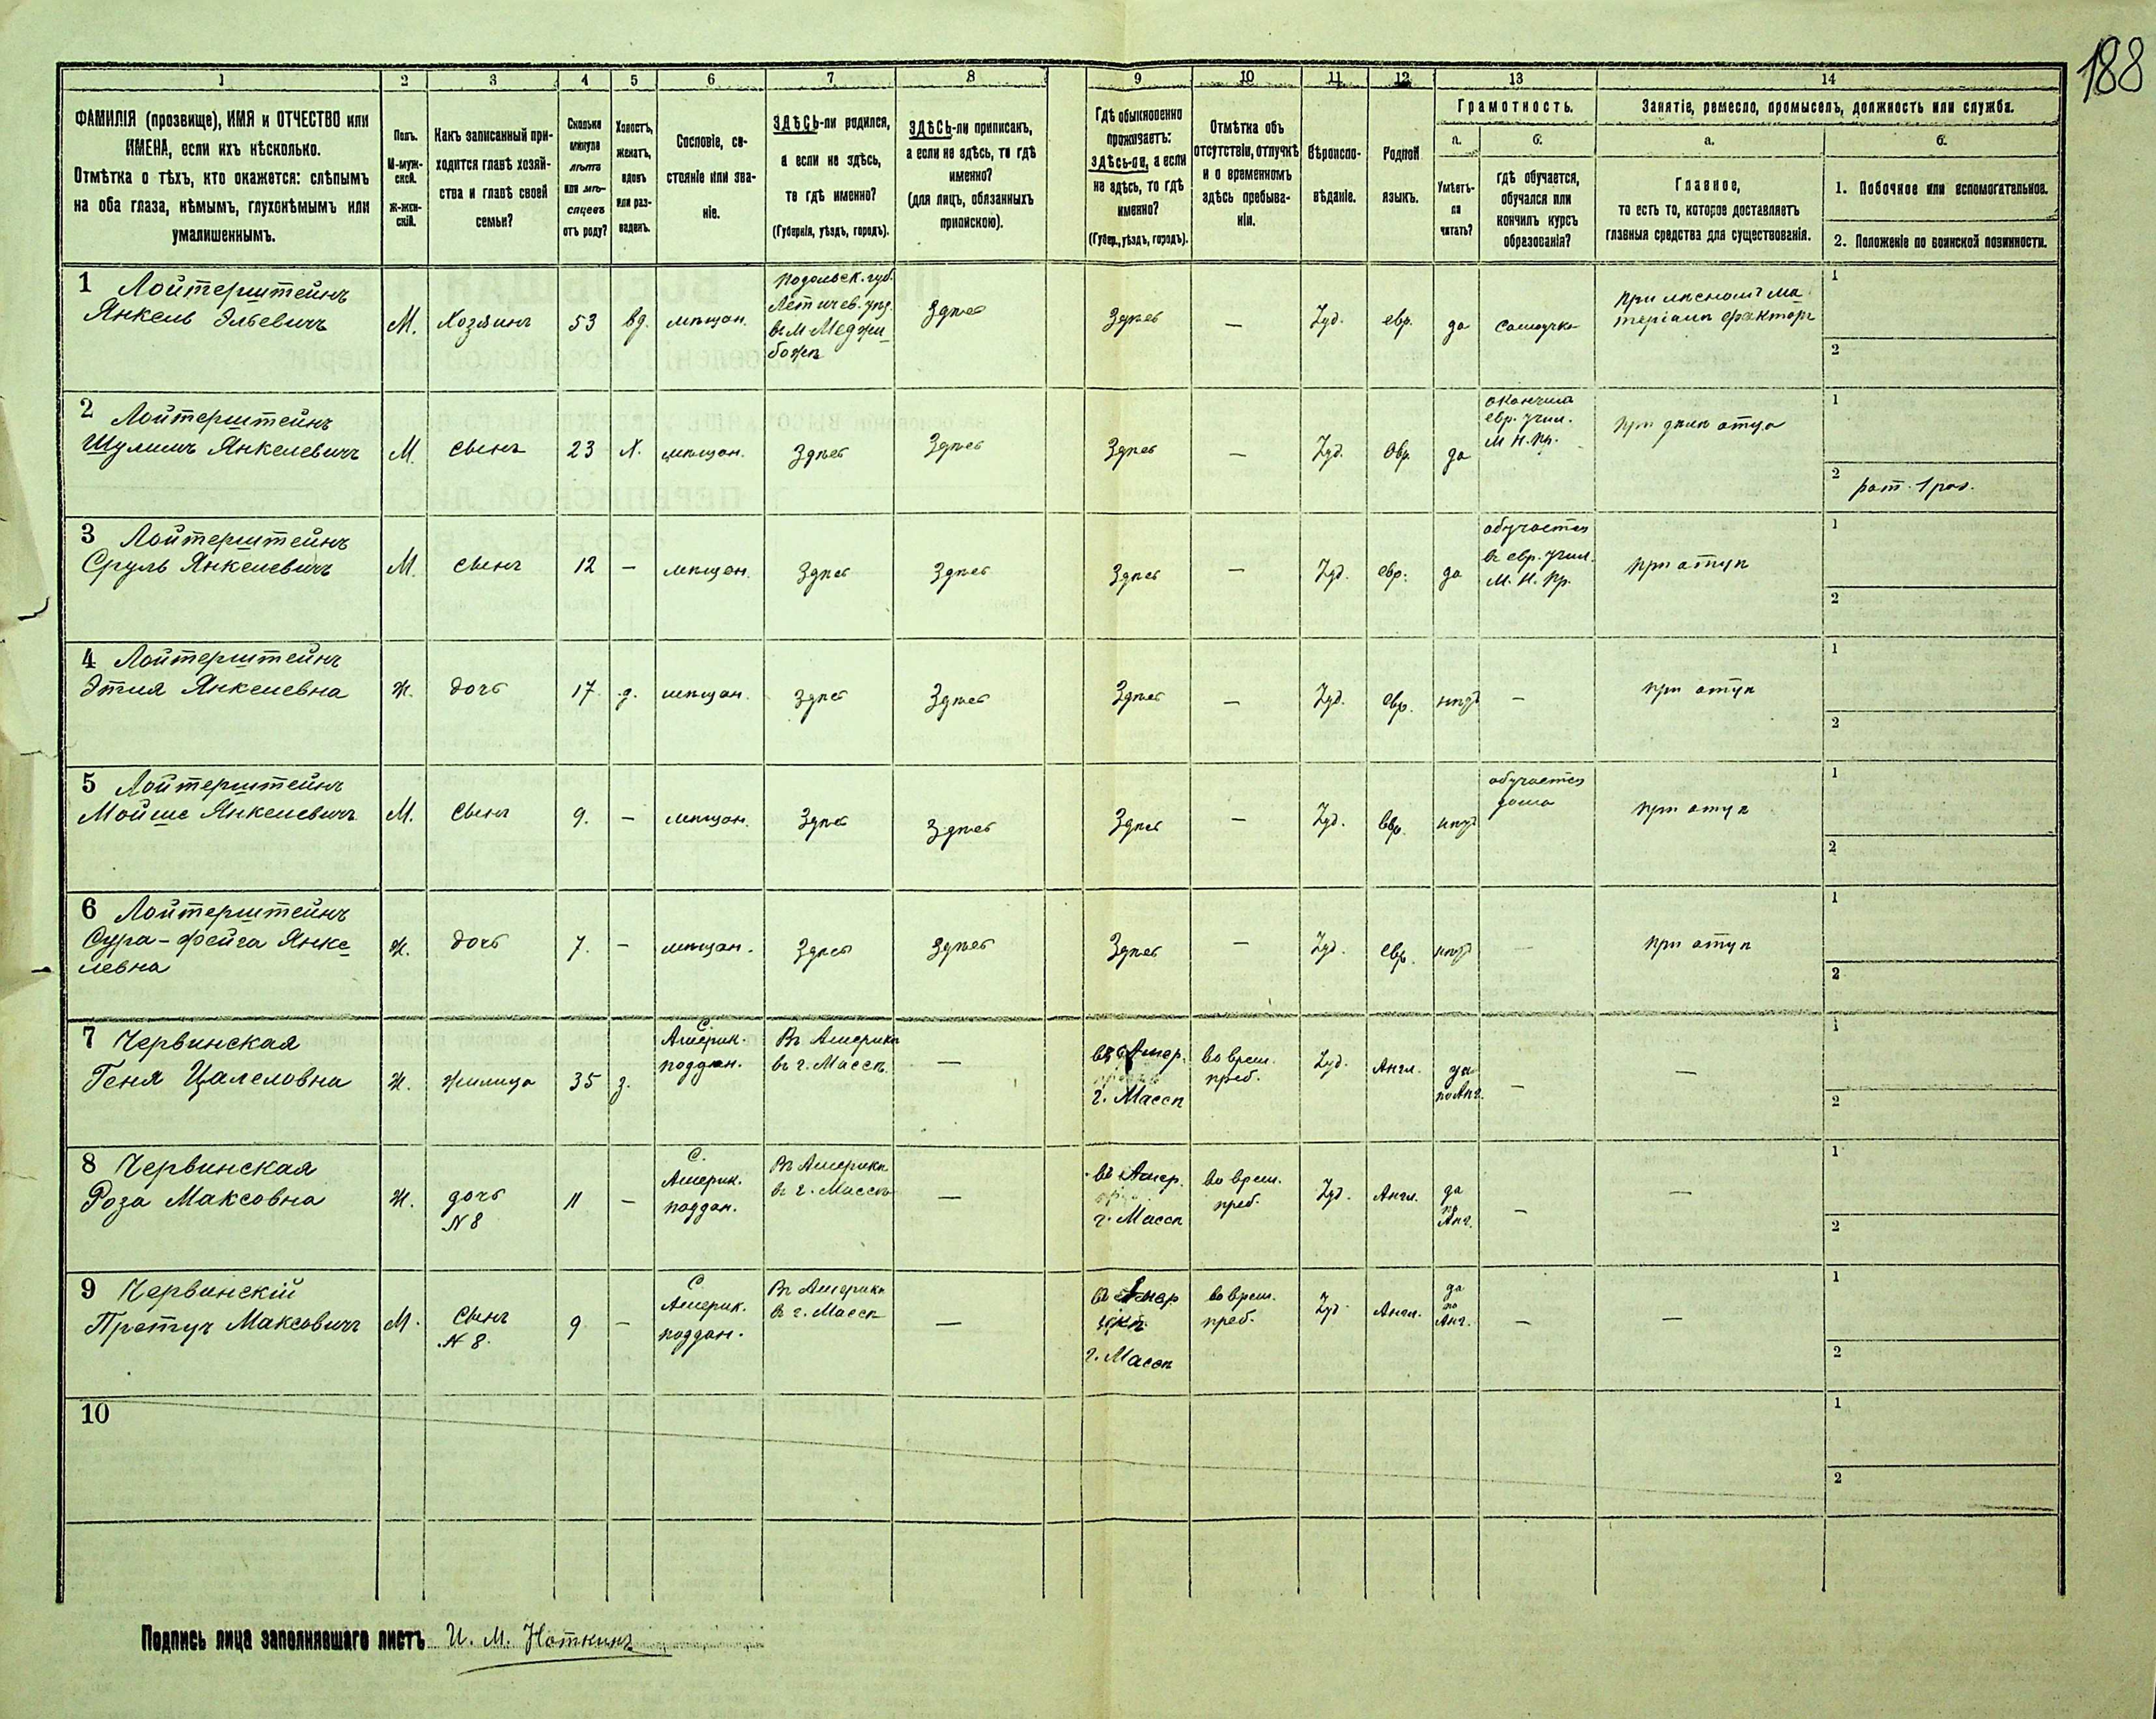 188
1 2 3 4 5 6 7 8 9 10 11 12 13 14
ФАМИЛІЯ (прозвище), ИМЯ и ОТЧЕСТВО или
ИМЕНА, если ихъ нѣсколько.
Отмѣтка о тѣхъ, кто окажется: слѣпымъ
на оба глаза, нѣмымъ, глухонѣмымъ или
умалишеннымъ.
Полъ.
М-муж-
ской.
Ж-жен-
скій.
Какъ записанный при-
ходится главѣ хозяй-
ства и главѣ своей
семьи?
Сколько
минуло
лѣтъ
или мѣ-
сяцевъ
отъ роду?
Холостъ,
женатъ,
вдовъ
или раз-
веденъ.
Сословіе, со-
стояніе или зва-
ніе.
ЗДѢСЬ-ли родился,
а если не здѣсь,
то гдѣ именно?
(Губернія, уѣздъ, городъ).
ЗДѢСЬ-ли приписанъ,
а если не здѣсь, то гдѣ
именно?
(для лицъ, обязанныхъ
припискою).
Гдѣ обыкновенно
проживаетъ:
здѣсь-ли, а если
не здѣсь, то гдѣ
именно?
(Губер., уѣздъ, городъ).
Отмѣтка объ
отсутствіи, отлучкѣ
и о временномъ
здѣсь пребыва-
ніи.
Вѣроиспо-
вѣданіе.
Родной
языкъ.
Грамотность.
а.
Умѣетъ-
ли
читать?
б.
гдѣ обучается,
обучался или
кончилъ курсъ
образованія?
Занятіе, ремесло, промыселъ, должность или служба.
а.
Главное,
то есть то, которое доставляетъ
главныя средства для существованія.
б.
1. Побочное или вспомогательное.
2. Положеніе по воинской повинности.
1 Лойтерштейнъ
Янкель Эльевичъ
М.
Хозяинъ
53
вд.
мѣщан.
Подольск. губ.
Летичев. уѣзд.
въ м Меджи
божѣ
Здѣсь
Здѣсь
—
Іуд.
евр.
да
самоучка
при лѣсномъ ма
теріалѣ факторъ
1
2
2 Лойтерштейнъ
Шулимъ Янкелевичъ
М.
Сынъ
23
Х.
мѣщан.
Здѣсь
Здѣсь
Здѣсь
—
Іуд.
Евр.
да
окончил
евр. учил.
М. Н. Пр.
при дѣлѣ отца
1
2 рат. 1 раз.
3 Лойтерштейнъ
Сруль Янкелевичъ
М.
Сынъ
12
—
мѣщан.
Здѣсь
Здѣсь
Здѣсь
—
Іуд.
евр.
да
обучается
въ евр. учил.
М. Н. Пр.
при отцѣ
1
2
4 Лойтерштейнъ
Этля Янкелевна
Ж.
дочь
17
д.
мѣщан.
Здѣсь
Здѣсь
Здѣсь
—
Іуд.
евр.
нѣтъ
—
при отцѣ
1
2
5 Лойтерштейнъ
Мойше Янкелевичъ
М.
Сынъ
9.
—
мѣщан.
Здѣсь
Здѣсь
Здѣсь
—
Іуд.
Евр.
нѣтъ
обучается
дома
при отцѣ
1
2
6 Лойтерштейнъ
Сура-Фейга Янке
левна
Ж.
дочь
7.
—
мѣщан.
Здѣсь
Здѣсь
Здѣсь
—
Іуд.
евр.
нѣтъ
—
при отцѣ
1
2
7 Червинская
Геня Цалеловна
Ж.
жилица
35
з.
С.
Америк.
поддан.
Въ Америкѣ
въ г. Массѣ
—
въ Амер.
г. Массѣ
во врем.
преб.
Іуд.
Англ.
да
по Анг.
—
—
1
2
8 Червинская
Роза Максовна
Ж.
дочь
N 8
11
—
С.
Америк.
поддан.
Въ Америкѣ
въ г. Массѣ
—
въ Амер.
г. Массѣ
во врем.
преб.
Іуд.
Англ.
да
по
Анг.
—
—
1
2
9 Червинскій
Претуч Максовичъ
М.
Сынъ
N 8.
9
—
С
Америк.
поддан.
Въ Америкѣ
въ г. Массѣ
—
въ Амер
г. Массѣ
во врем.
преб.
Іуд.
Англ.
да
по
Анг.
—
—
1
2
10
1
2
Подпись лица заполнявшаго листъ И. М. Ноткинъ